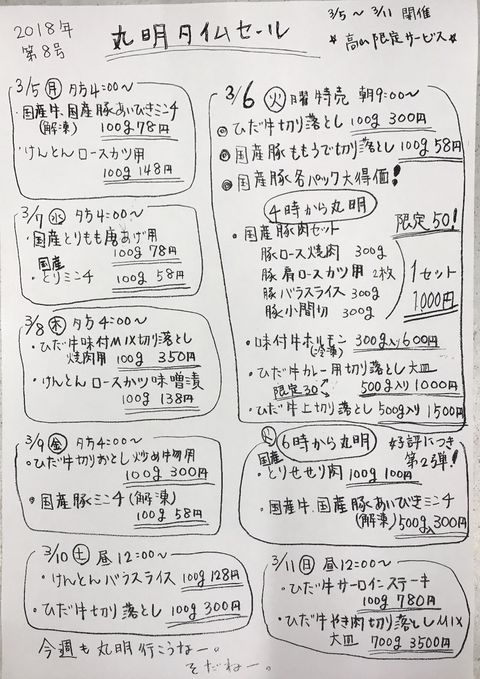 2018年
第8号
丸明タイムセール
3/5〜3/11 開催
★高山限定サービス★
3/5(月)夕方4:00〜
・国産牛、国産豚あいびきミンチ
(解凍) 100g 78円
・けんとんロースカツ用
100g 148円
3/7(水)夕方4:00〜
・国産とりもも唐あげ用
100g 78円
・国産とりミンチ 100g 58円
3/8(木)夕方4:00〜
・ひだ牛味付MIX切り落とし
焼肉用 100g 350円
・けんとんロースカツ味噌漬
100g 138円
3/9(金)夕方4:00〜
・ひだ牛切りおとし炒め物用
100g 300円
・国産豚ミンチ(解凍)
100g 58円
3/10(土)昼12:00〜
・けんとんバラスライス 100g 128円
・ひだ牛切り落とし 100g 300円
3/6(火)曜特売 朝9:00〜
◎ひだ牛切り落とし 100g 300円
◎国産豚ももうで切り落とし 100g 58円
◎国産豚各パック大得価!
4時から丸明
限定50!
・国産豚肉セット
豚ロース焼肉 300g
豚肩ロースカツ用 2枚
豚バラスライス 300g
豚小間切 300g
1セット
1000円
・味付牛ホルモン(冷凍) 300g入り600円
・ひだ牛カレー用切り落とし大皿
限定30 500g入り 1000円
・ひだ牛上切り落とし 500g入り 1500円
(火)6時から丸明
好評につき
第2弾!
・国産とりせせり肉 100g 100円
・国産牛、国産豚あいびきミンチ
(解凍) 500g入300円
3/11(日)昼12:00〜
・ひだ牛サーロインステーキ
100g 780円
・ひだ牛やき肉切り落としMIX
大皿 700g 3500円
今週も丸明行こうなー。
そだねー。